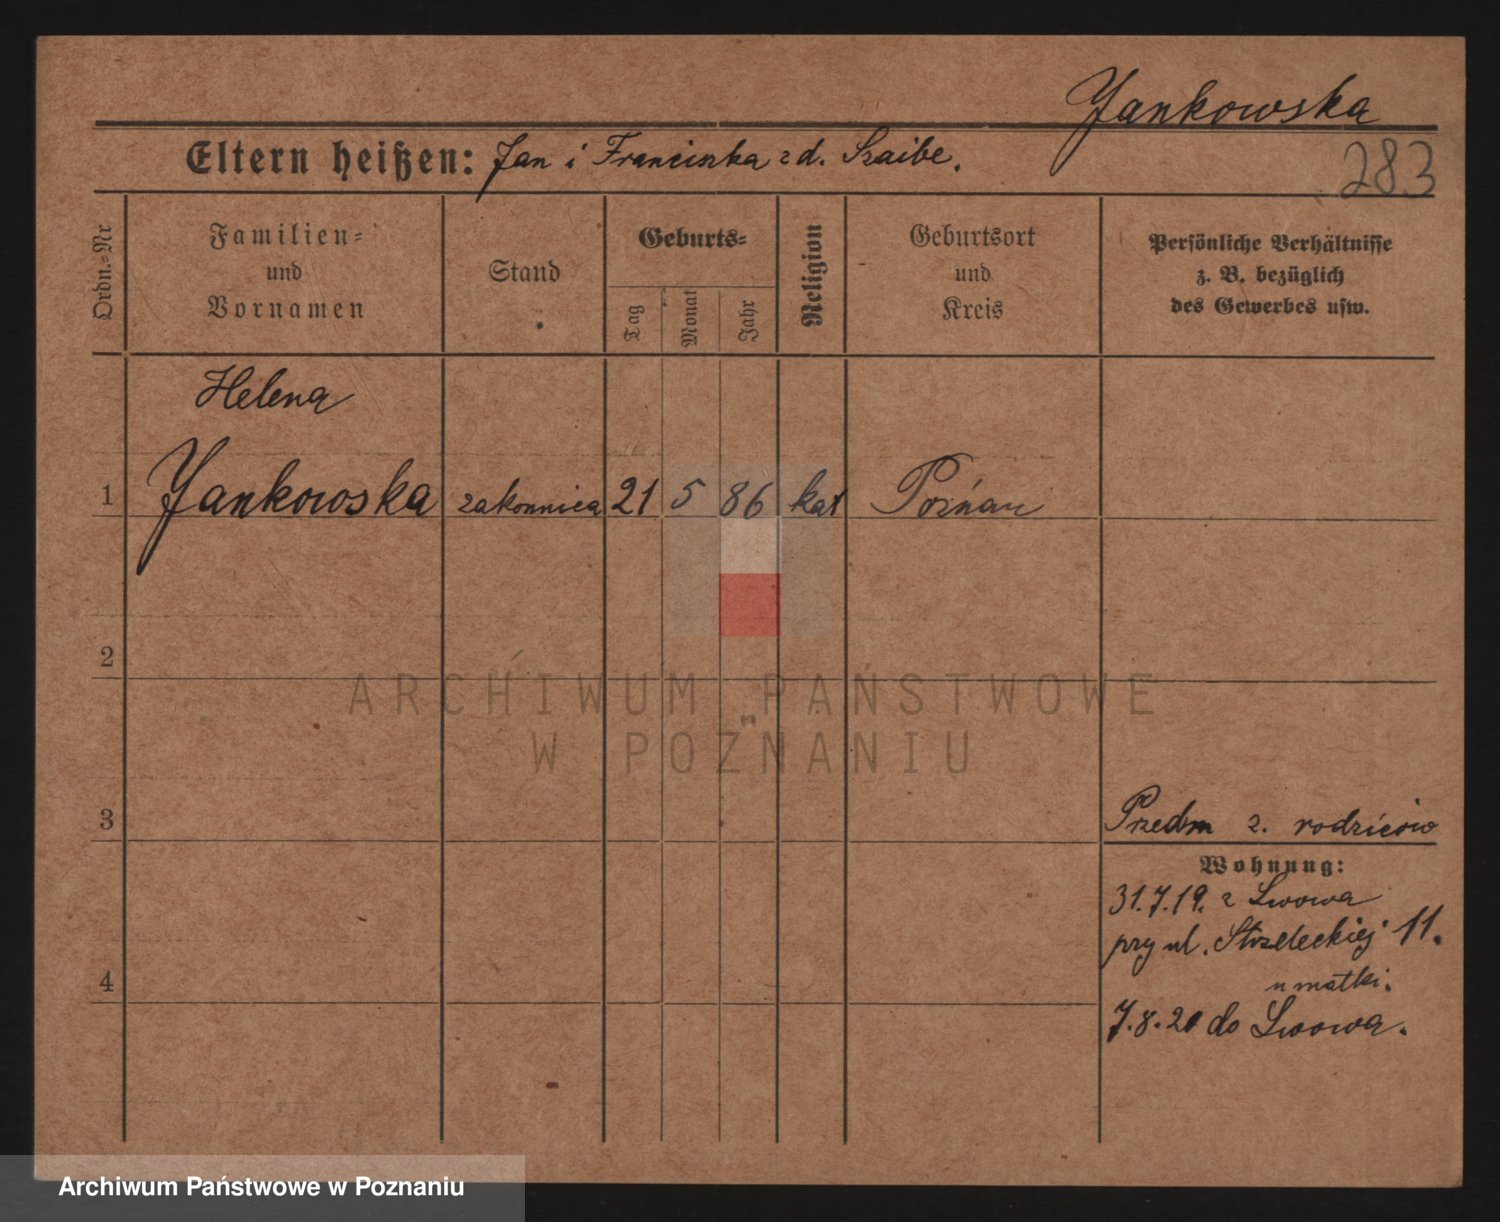 Jankowska
Eltern heißen: Jan i Franciszka zd. Szaibe.
283
Ordn.-Nr
Familien-
und
Vornamen
Stand
Geburts-
Tag
Monat
Jahr
Religion
Geburtsort
und
Kreis
Persönliche Verhältnisse
z. B. bezüglich
des Gewerbes usw.
Helena
1 Jankowska zakonnica 21 5 86 kat Poznań
2
ARCHIWUM PAŃSTWOWE
W POZNANIU
3
Przedm z. rodziców
Wohnung:
31.7.19. z Lwowa
przy ul. Strzeleckiej 11.
u matki.
4
7.8.20 do Lwowa.
Archiwum Państwowe w Poznaniu